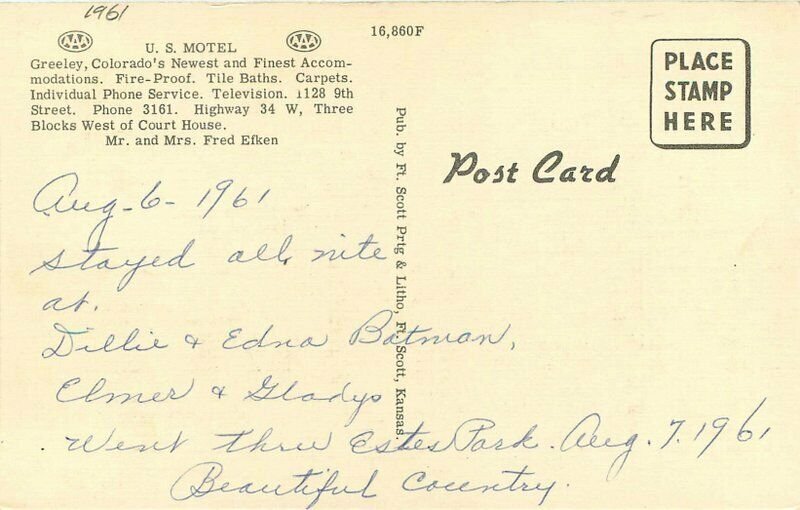 1961
16,860F
AAA AAA
U. S. MOTEL
Greeley, Colorado's Newest and Finest Accom-
modations. Fire-Proof. Tile Baths. Carpets.
Individual Phone Service. Television. 1128 9th
Street. Phone 3161. Highway 34 W, Three
Blocks West of Court House.
Mr. and Mrs. Fred Efken
PLACE
STAMP
HERE
Post Card
Pub. by Ft. Scott Prtg & Litho, Ft. Scott, Kansas.
Aug-6-1961
stayed all nite
at.
Dillie & Edna Batman,
Elmer & Gladys
Went thru Estes Park. Aug. 7. 1961
Beautiful Country.